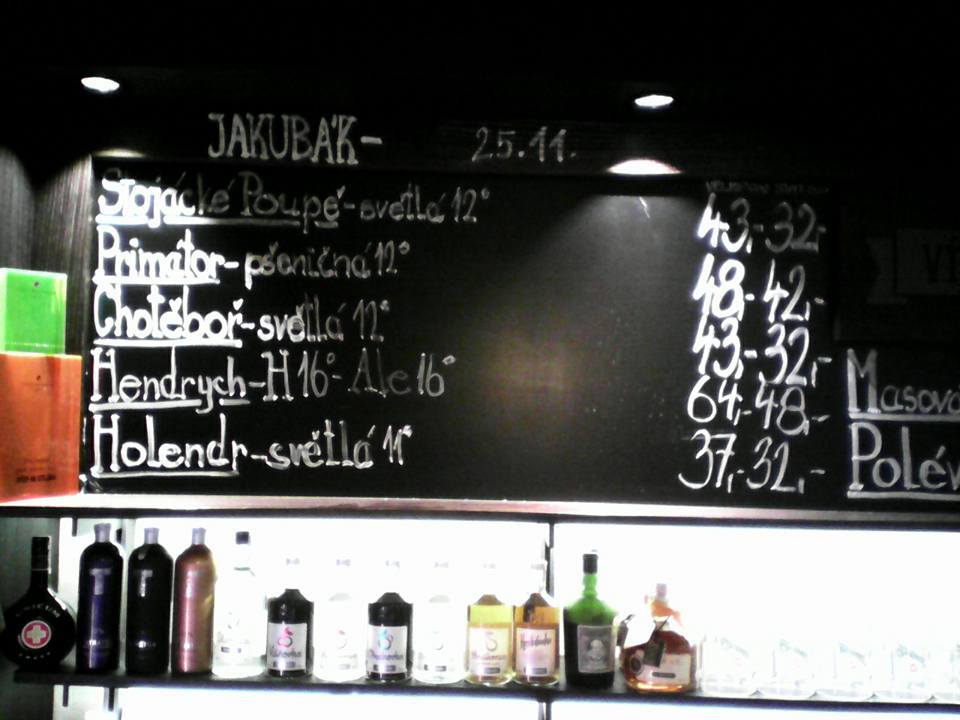 JAKUBÁK- 25.11.
Stojácké Poupě-světlá 12° 43,- 32,-
Primátor-pšeničná 12° 48,- 42,-
Chotěboř-světlá 12° 43,- 32,-
Hendrych-H 16°- Ale 16° 64,- 48,-
Holendr-světlá 11° 37,- 32,-
Masová
Polév
UNICUM